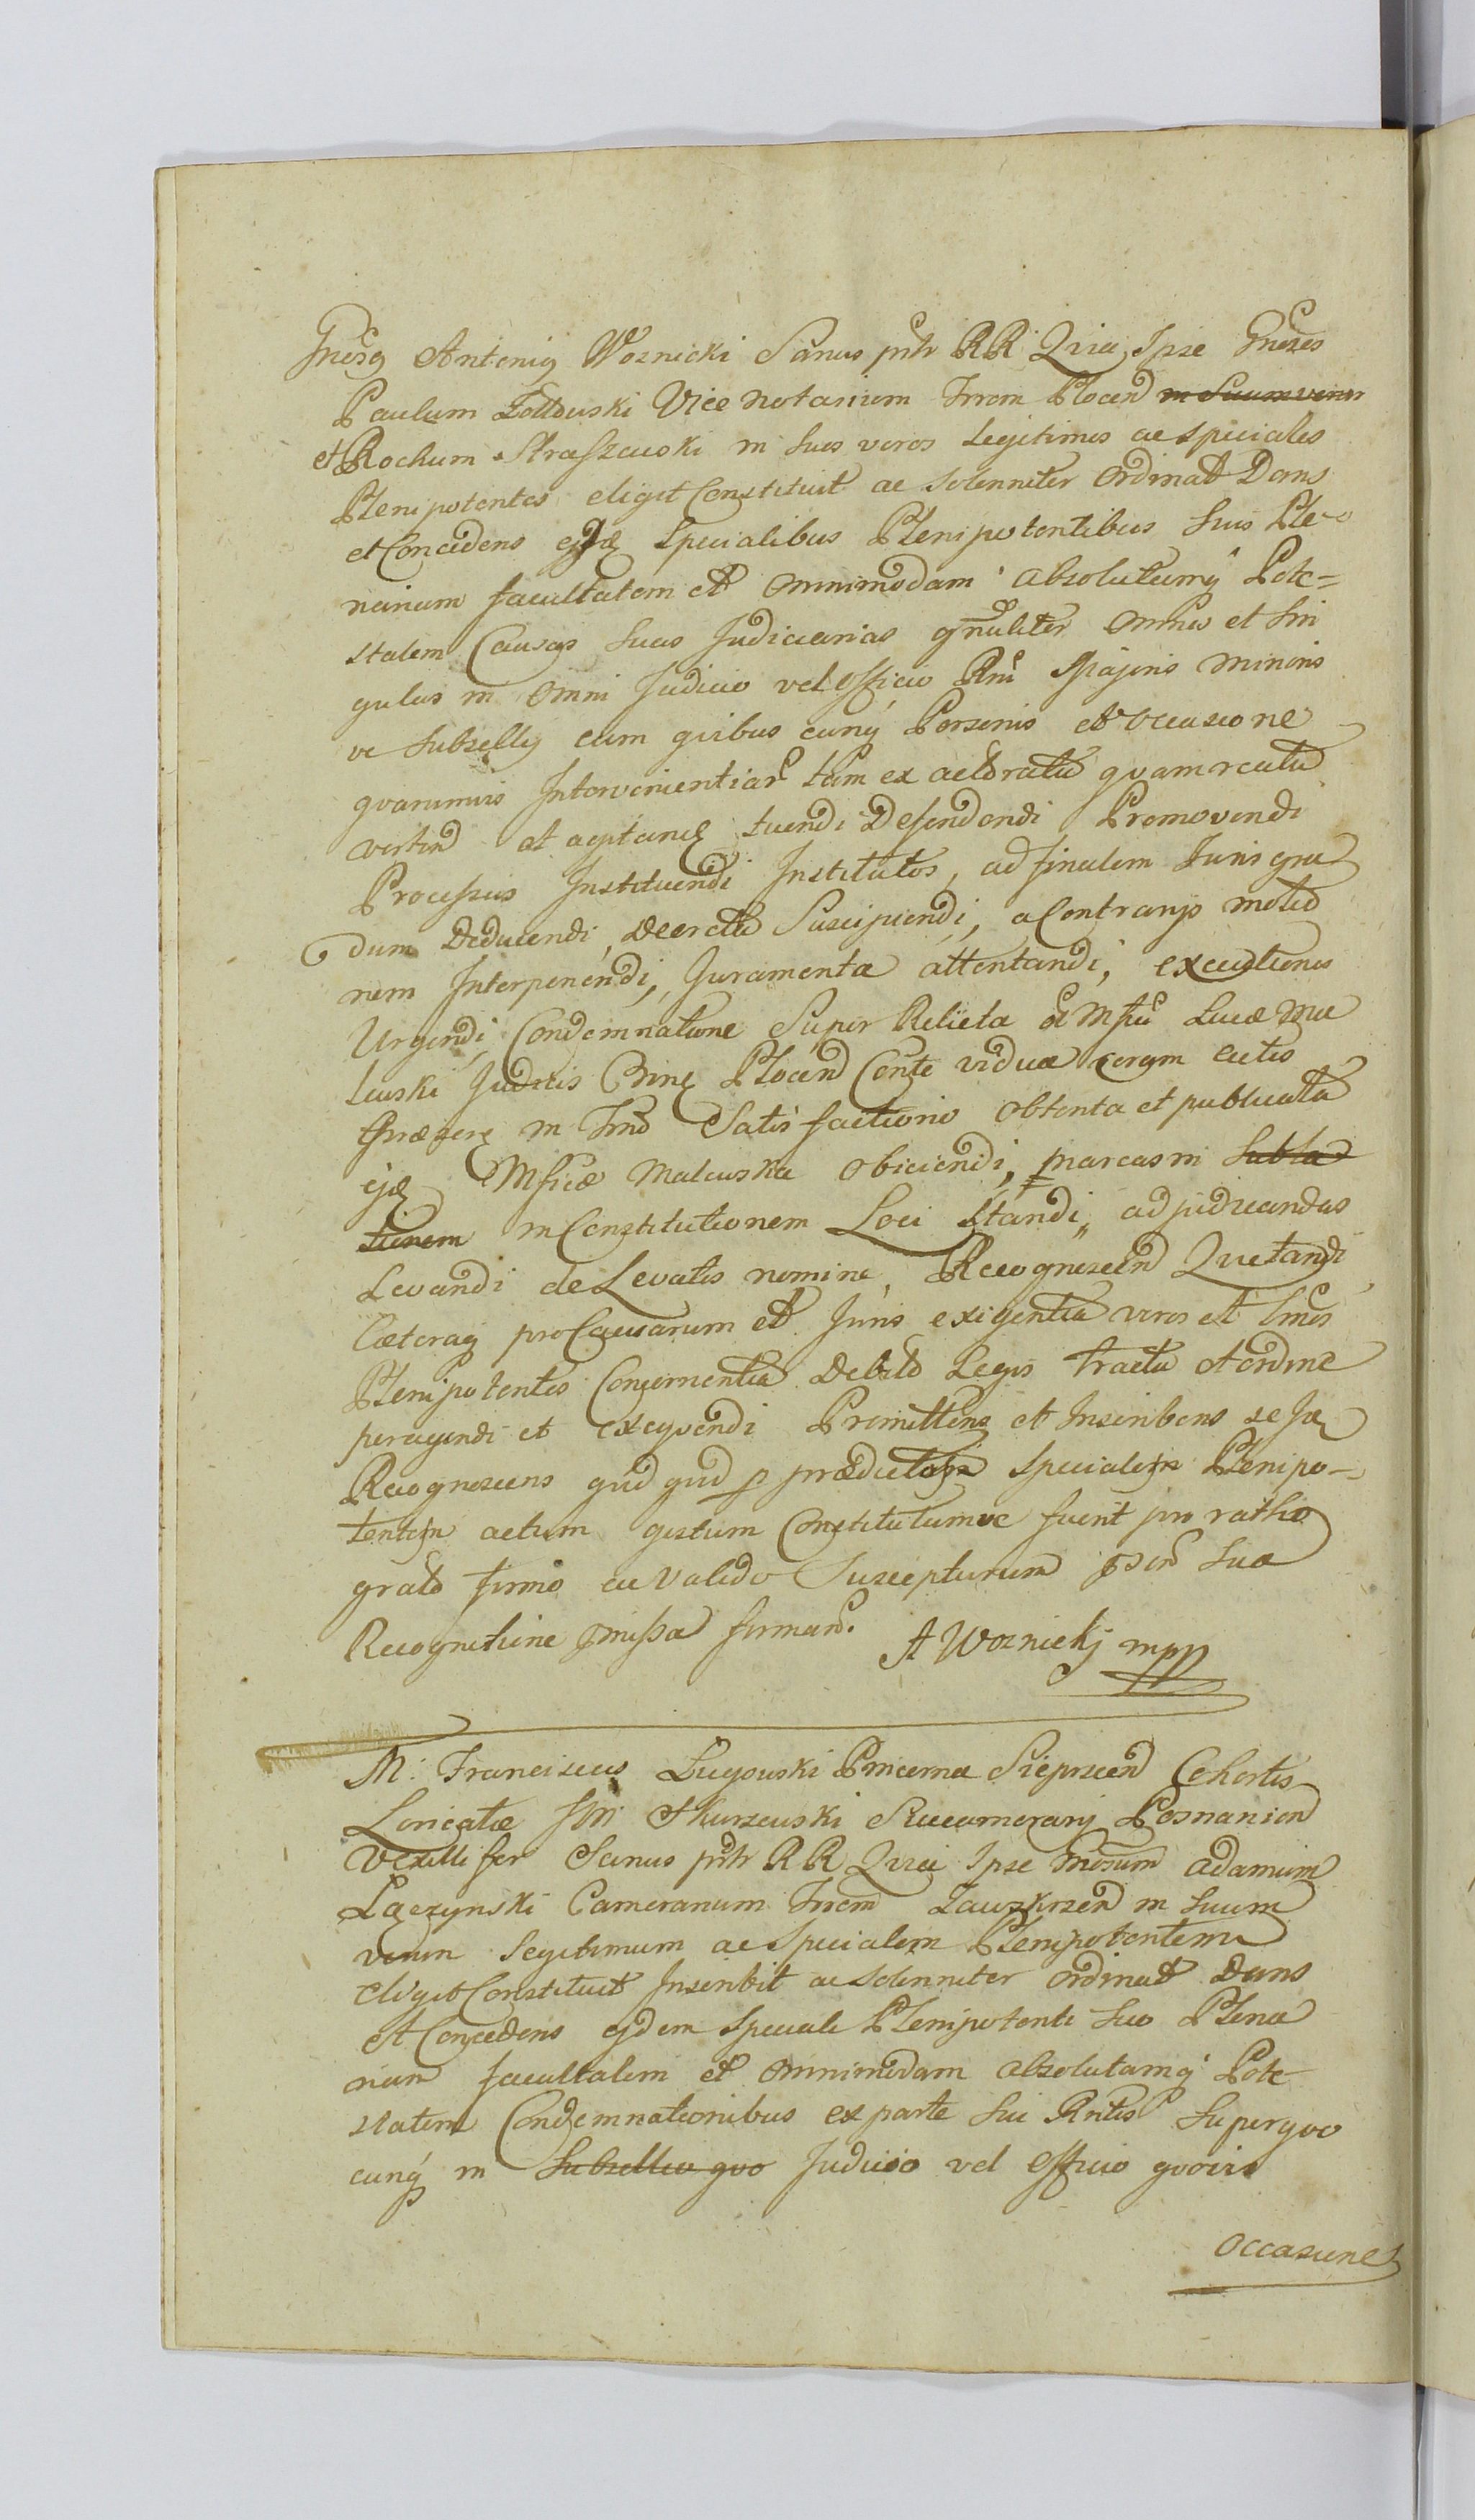 Gnẽsg Antonig Woznicki Sanus pñtr RR Quia Ipse Gnẽses
Paulum Zołtowski Vice Notarium Trrem Plocen̄ in Suum verum
et Rochum Straszewski in suos veros Legitimos ac speciales
Plenipotentes eligit Constituit ac Solenniter Ordinat Dans
et Concedens ejdẽ Specialibus Plenipotentibus Suis Ple-
nariam facultatem et omnimodam absolutamq̃ Pote=
statem Causas Suas Judiciarias gñaliter omnes et Sin
gulas in omni Judicio vel Officio Rni Majoris minoris
ve Subsellij cum quibus cunq̃ Personis et Occasione
quarumvis Intervenientiar̃ tam ex actoratu quam reatu
verten̄ tuendi Defendendi Promovendi
Processus Instituendi Institutos, ad finalem Juris gra
dum Deducendi, Decreta Suscipiendi, a Contrarijs motio
nem Interponendi, Juramenta attentandi, executiones
Urgendi, Condemnatione Super Relicta Mfci Lucæ Ma
lewski Judicis Plocen̄ Conte vidua coram actis
in Satisfactione obtenta et publicata
ejdẽ Mficæ Malewska Obiiciendi, marcas ni Subla
tionem in Constitutionem Loci Standi, adjudicandas
Levandi de Levatis nomine Recognoscen̄ Quietandi
Cæteraq̃ pro Causarum et Juris exigentia veros et Lmos
Plenipotentes Concernentia Debito Legis tractu et ordine
peragendi et exequendi Promittens et Inscribens se
Recognoscens qūd qūd p̱ prædictos Speciales Plenipo-
tentes actum gestum Constitutumve fuerit pro ratho
grato firmo ac valido Suscepturum Sua
Recognitione pmissa firman̄. A Woznickj mpp
M: Franciscus Ługowski Pincerna Sieprscen̄ Cohortis
Loricatæ Skurzewski Succamerarij Posnanien̄
Vexillifer Sanus pñtr RR Quia Ipse Gnosum Adamum
Łączynski Camerarium Trrem Zawskrzen̄ in Suum
verum legitimum ac Specialem Plenipotentem
eligit Constituit Inscribit ac Solenniter ordinat Dans
et Concedens ejdem Speciali Plenipotenti Suo Plena
riam facultatem et omnimodam absolutamq̃ Pote-
statem Condemnationibus ex parte Sui Rntis Superquo
cunq̃ in Subsellio quo Judicio vel Officio quovis
occasione